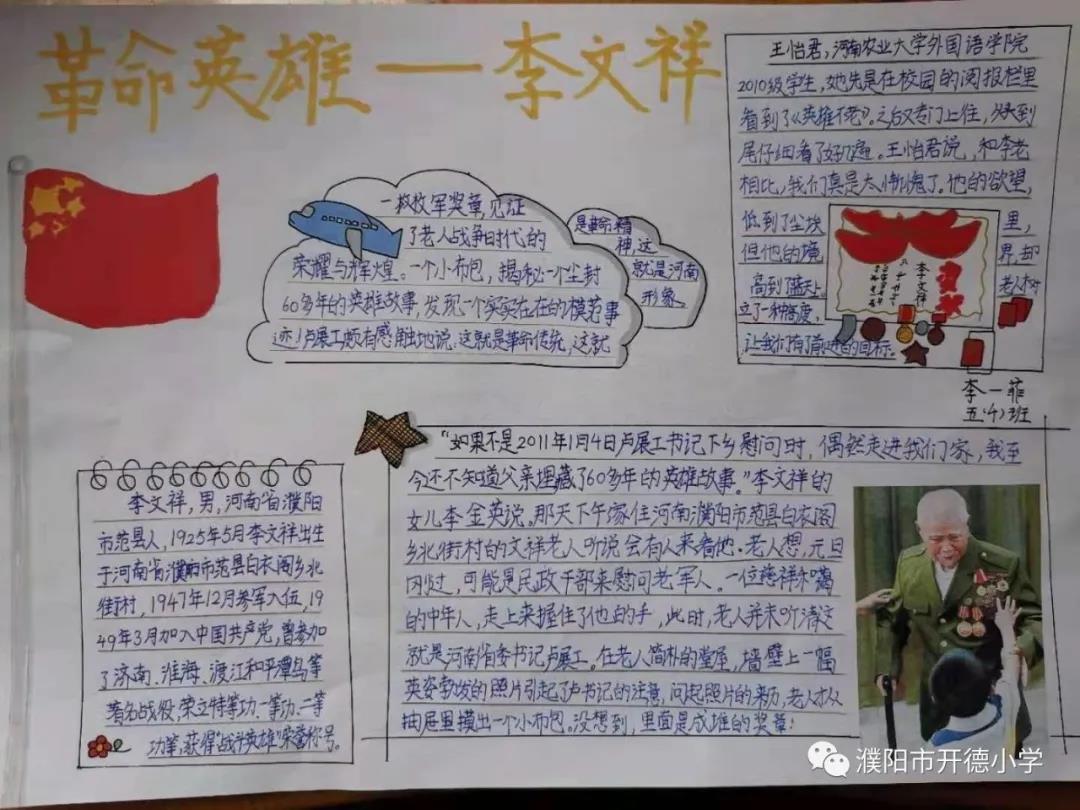 革命英雄——李文祥
王怡君,河南农业大学外国语学院
2010级学生,她先是在校园的阅报栏里
看到了《英雄不老》。之后又专门上往,从头到
尾仔细看了好几遍。王怡君说,和李老
相比,我们真是太惭愧了。他的欲望,
低到了尘埃里,
但他的境界,却
高到了蓝天上。老人树
立了一种高度,
让我们有了前进的目标。
李文祥
李一菲
五(4)班
一枚枚军奖章,见证
了老人战争时代的
荣耀与辉煌。一个小布包,揭秘一个尘封
60多年的英雄故事,发现一个实实在在的模范事
迹!卢展工颇有感触地说:这就是革命传统,这就
是革命精
神,这
就是河南
形象。
李文祥,男,河南省濮阳
市范县人,1925年5月李文祥出生
于河南省濮阳市范县白衣阁乡北
街村,1947年12月参军入伍,19
49年3月加入中国共产党,曾参加
了济南、淮海、渡江和平潭岛等
著名战役,荣立特等功、一等功、二等
功等,获得"战斗英雄"荣誉称号。
"如果不是2011年1月4日卢展工书记下乡慰问时,偶然走进我们家,我至
今还不知道父亲埋藏了60多年的英雄故事。"李文祥的
女儿李金英说。那天下午家住河南濮阳市范县白衣阁
乡北街村的文祥老人听说会有人来看他。老人想,元旦
刚过,可能是民政干部来慰问老军人。一位慈祥和蔼
的中年人,走上来握住了他的手,此时,老人并未听清这
就是河南省委书记卢展工。在老人简朴的堂屋,墙壁上一幅
英姿勃发的照片引起了卢书记的注意,问起照片的来历,老人才从
抽屉里摸出一个小布包。没想到,里面是成堆的奖章!
濮阳市开德小学